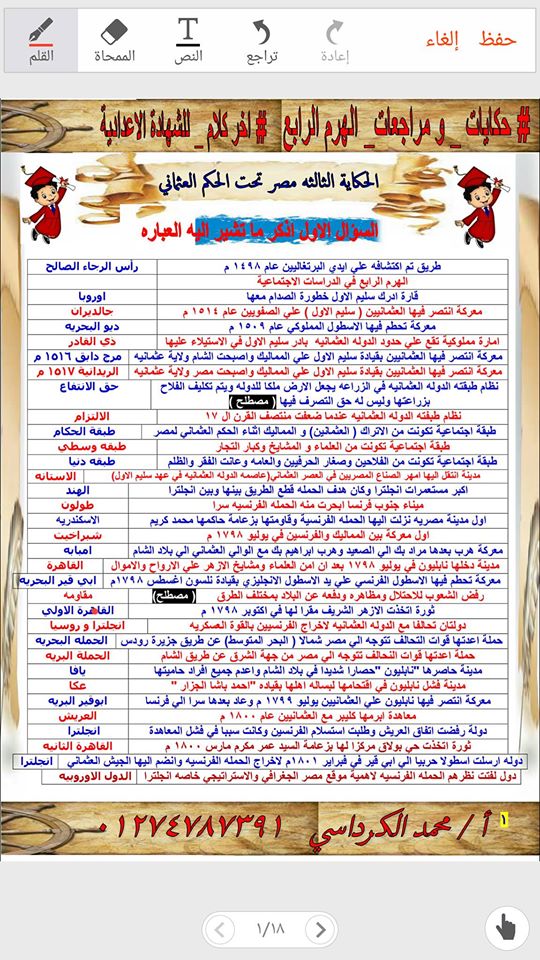 حفظ
إلغاء
إعادة
تراجع
النص
الممحاة
القلم
# حكايات _ و مراجعات_ الهرم الرابع # اخر كلام _ للشهادة الاعدادية
الحكاية الثالثه مصر تحت الحكم العثماني
السؤال الاول اذكر ما تشير اليه العباره
طريق تم اكتشافه علي ايدي البرتغاليين عام ١٤٩٨ م رأس الرجاء الصالح
الهرم الرابع في الدراسات الاجتماعية
قارة ادرك سليم الاول خطورة الصدام معها اوروبا
معركة انتصر فيها العثمانيين ( سليم الاول ) علي الصفويين عام ١٥١٤ م جالديران
معركة تحطم فيها الاسطول المملوكي عام ١٥٠٩ م ديو البحريه
امارة مملوكية تقع علي حدود الدوله العثمانيه بادر سليم الاول في الاستيلاء عليها ذي القادر
معركة انتصر فيها العثمانيين بقيادة سليم الاول علي المماليك واصبحت الشام ولاية عثمانيه مرج دابق ١٥١٦ م
معركة انتصر فيها العثمانيين بقيادة سليم الاول علي المماليك واصبحت مصر ولاية عثمانيه الريدانية ١٥١٧ م
نظام طبقته الدوله العثمانيه في الزراعه يجعل الارض ملكا للدوله ويتم تكليف الفلاح حق الانتفاع
بزراعتها وليس له حق التصرف فيها ( مصطلح )
نظام طبقته الدوله العثمانيه عندما ضعفت منتصف القرن ال ١٧ الالتزام
طبقة اجتماعية تكونت من الاتراك ( العثمانين) و المماليك اثناء الحكم العثماني لمصر طبقة الحكام
طبقة اجتماعية تكونت من العلماء و المشايخ وكبار التجار طبقه وسطي
طبقة اجتماعية تكونت من الفلاحين وصغار الحرفيين والعامه وعانت الفقر والظلم طبقه دنيا
مدينة انتقل اليها امهر الصناع المصريين في العصر العثماني(عاصمه الدوله العثمانيه في عهد سليم الاول) الاستانه
اكبر مستعمرات انجلترا وكان هدف الحمله قطع الطريق بينها وبين انجلترا الهند
ميناء جنوب فرنسا ابحرت منه الحمله الفرنسيه سرا طولون
اول مدينة مصريه نزلت اليها الحملة الفرنسية وقاومتها بزعامة حاكمها محمد كريم الاسكندريه
اول معركة بين المماليك والفرنسين في يوليو ١٧٩٨ م شبراخيت
معركة هرب بعدها مراد بك الي الصعيد وهرب ابراهيم بك مع الوالي العثماني الي بلاد الشام امبابه
مدينة دخلها نابليون في يوليو ١٧٩٨ بعد ان امن العلماء ومشايخ الازهر علي الارواح والاموال القاهرة
معركة تحطم فيها الاسطول الفرنسي علي يد الاسطول الانجليزي بقيادة نلسون اغسطس ١٧٩٨م ابي قير البحريه
رفض الشعوب للاحتلال ومظاهره ودفعه عن البلاد بمختلف الطرق ( مصطلح ) مقاومه
ثورة اتخذت الازهر الشريف مقرا لها في اكتوبر ١٧٩٨ م القاهرة الاولي
دولتان تحالفا مع الدوله العثمانيه لاخراج الفرنسيين بالقوه العسكريه انجلترا و روسيا
حملة اعدتها قوات التحالف تتوجه الي مصر شمالا ( البحر المتوسط) عن طريق جزيرة رودس الحملة البحريه
حملة اعدتها قوات التحالف تتوجه الي مصر من جهة الشرق عن طريق الشام الحملة البريه
مدينة حاصرها "نابليون "حصارا شديدا في بلاد الشام واعدم جميع افراد حاميتها يافا
مدينة فشل نابليون في اقتحامها لبساله اهلها بقياده "احمد باشا الجزار " عكا
معركة انتصر فيها نابليون علي العثمانيين يوليو ١٧٩٩ م وعاد بعدها سرا الي فرنسا ابوقير البريه
معاهدة ابرمها كليبر مع العثمانيين عام ١٨٠٠ م العريش
دولة رفضت اتفاق العريش وطلبت استسلام الفرنسين وكانت سببا في فشل المعاهدة انجلترا
ثورة اتخذت حي بولاق مركزا لها بزعامة السيد عمر مكرم مارس ١٨٠٠ م القاهرة الثانيه
دوله ارسلت اسطولا حربيا الي ابي قير في فبراير ١٨٠١م لاخراج الحمله الفرنسيه وانضم اليها الجيش العثماني انجلترا
دول لفتت نظرهم الحمله الفرنسيه لاهمية موقع مصر الجغرافي والاستراتيجي خاصه انجلترا الدول الاوروبية
١
أ / محمد الكرداسي ٠١٢٧٤٧٨٧٣٩١
١/١٨